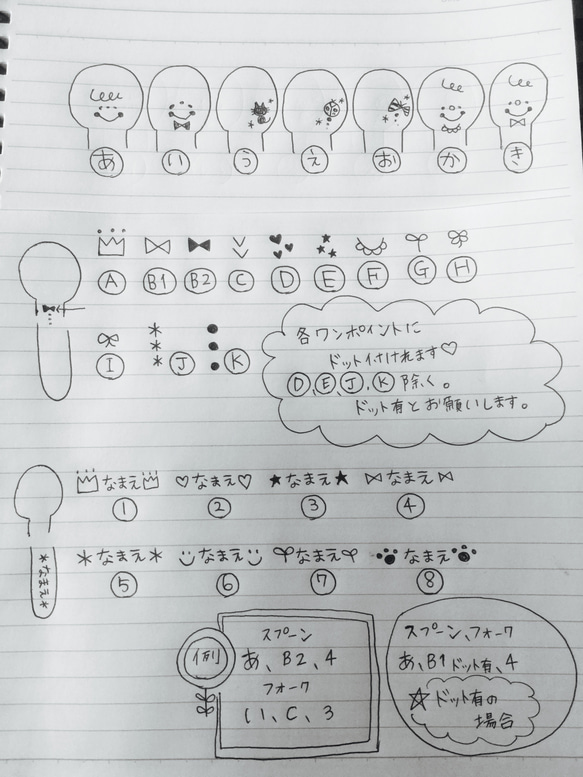 あ い う え お か き
A B1 B2 C D E F G H
I J K
各ワンポイントに
ドット付けれます♡
D、E、J、K 除く。
ドット有とお願いします。
なまえ なまえ なまえ なまえ
① ② ③ ④
*なまえ*
*なまえ* なまえ なまえ なまえ
⑤ ⑥ ⑦ ⑧
例
スプーン
あ、B2、4
フォーク
い、C、3
スプーン、フォーク
あ、B1 ドット有、4
☆ドット有の
場合